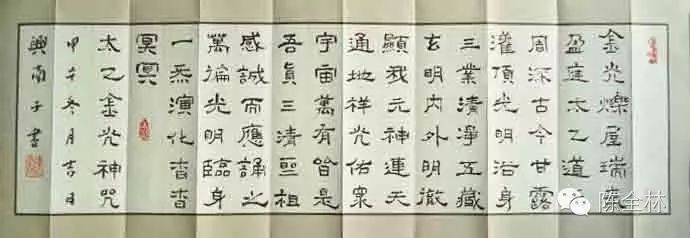 金光爍屋瑞氣
盈庭太乙道
周深古今甘露
灌頂光明浴身
三業清淨五藏
玄明内外明徹
顯我元神連天
通地祥光佑眾
宇宙萬有皆是
吾真三清聖祖
感誠而應誦之
萬徧光明臨身
一炁演化杳杳
冥冥
太乙金光神咒
甲午冬月吉日
興南子書
陈全林